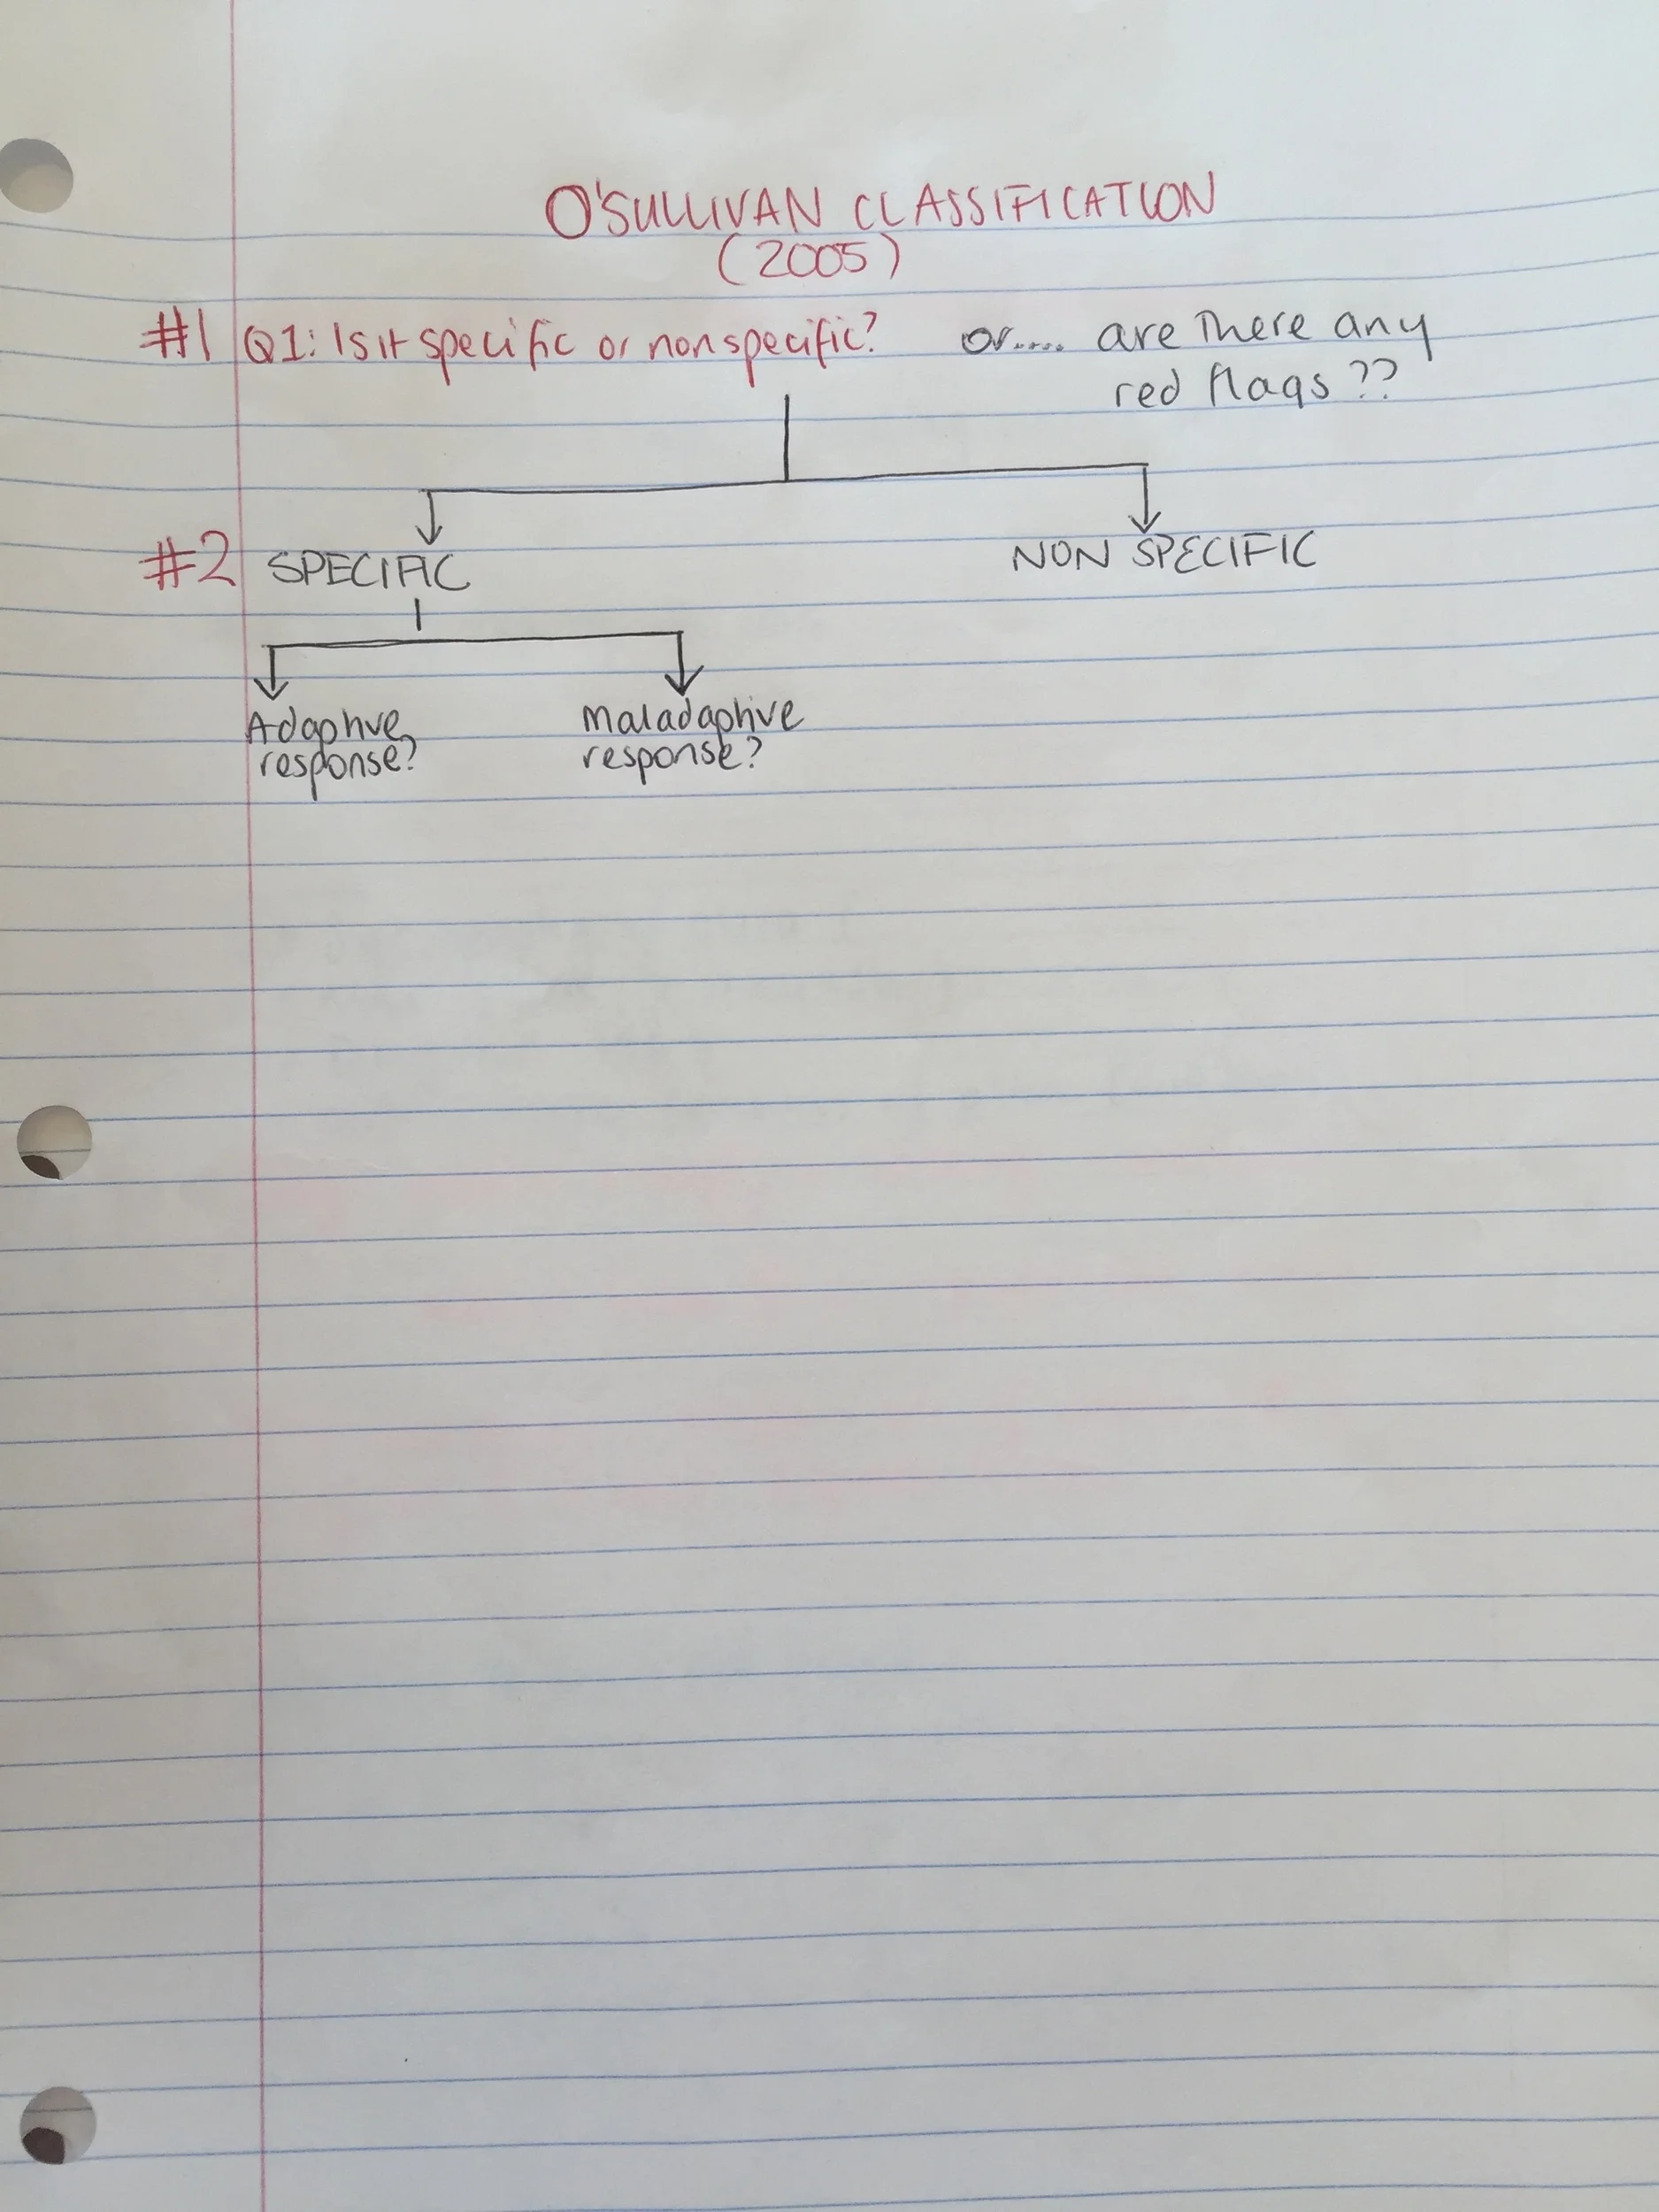 O'SULLIVAN CLASSIFICATION
(2005)
#1 Q1: Is it specific or nonspecific? or..... are there any
red flags??
#2 SPECIFIC NON SPECIFIC
Adaptive Maladaptive
response? response?